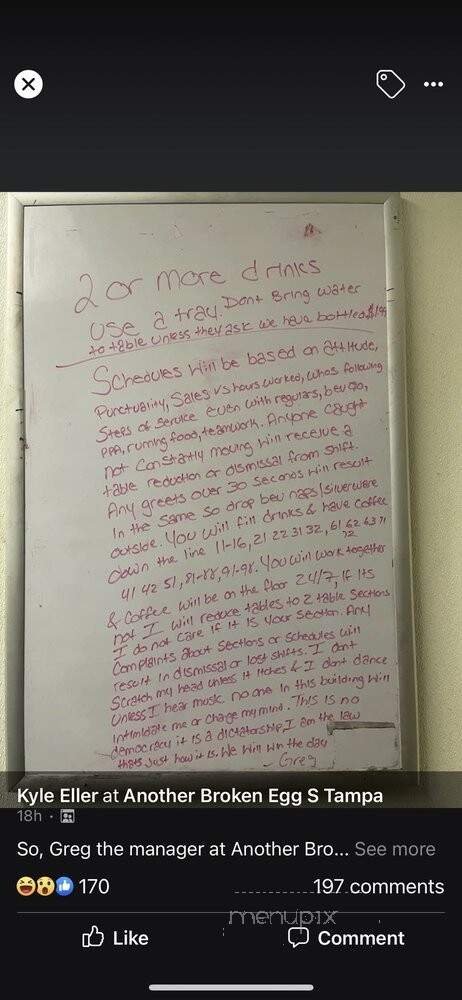 2 or more drinks
Use a tray. Dont Bring water
to table unless they ask we have bottled $1.99
Schedules will be based on attitude,
Punctuality, Sales vs hours worked, whos following
Steps of service even with regulars, bev go,
PPA, running food, teamwork. Anyone caught
not constatly moving will receive a
table reduction or dismissal from shift.
Any greets over 30 seconds will result
In the same so drop bev naps/silverware
outside. You will fill drinks & have coffee
down the line 11-16, 21 22 31 32, 61 62 63 71
72
41 42 51, 81-88, 91-98. You will work together
& Coffee will be on the floor 24/7, If its
not I will reduce tables to 2 table sections
I do not care if it is your section. Any
Complaints about sections or schedules will
result in dismissal or lost shifts. I dont
Scratch my head unless it itches & I dont dance
unless I hear music. no one in this building will
intimidate me or chage my mind. This is no
democracy it is a dictatorship, I am the law
thats Just how it is. We will win the day
- Greg
Kyle Eller at Another Broken Egg S Tampa
18h ·
So, Greg the manager at Another Bro... See more
170
197 comments
menupix
Like
Comment